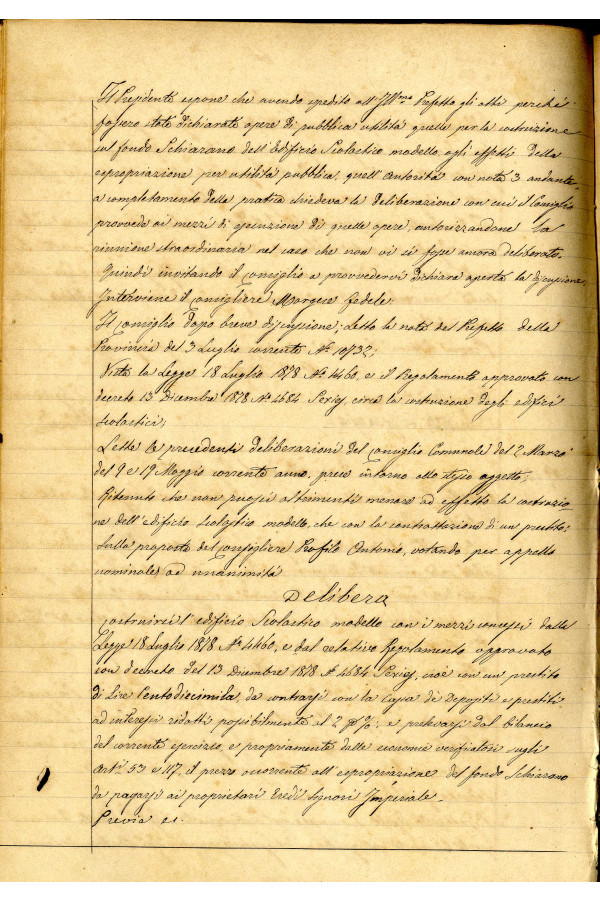 Il Presidente espone che avendo spedito all'Ill.mo Prefetto gli atti perchè
fossero state dichiarate opere di pubblica utilità quelle per la costruzione
sul fondo Schiarano dell'Edificio Scolastico modello, agli effetti della
espropriazione per utilità pubblica, quell'Autorità con nota 3 andante,
a completamento della pratica chiedeva la deliberazione con cui il Consiglio
provvede ai mezzi di esecuzione di quelle opere, autorizzandone la
riunione straordinaria nel caso che non vi si fosse ancora deliberato.
Quindi invitando il Consiglio a provvedervi dichiara aperta la discussione.
Interviene il Consigliere Margese Fedele.
Il Consiglio dopo breve discussione; Letta la nota del Prefetto della
Provincia del 3 Luglio corrente N.° 10732;
Vista la Legge 18 Luglio 1878 N.° 4460, e il Regolamento approvato con
decreto 13 Dicembre 1878 N.° 4684 Serie, circa la costruzione degli edifici
scolastici;
Lette le precedenti deliberazioni del Consiglio Comunale del 2 Marzo
del 9 e 19 Maggio corrente anno, prese intorno allo stesso oggetto;
Ritenuto che non puossi altrimenti menare ad effetto la costruzio
ne dell'edificio scolastico modello, che con la contrattazione di un prestito;
Sulla proposta del Consigliere Profilo Antonio, votando per appello
nominale ad unanimità
Delibera
costruirsi l'edificio Scolastico modello con i mezzi concessi dalla
Legge 18 Luglio 1878 N.° 4460, e dal relativo Regolamento approvato
con decreto del 13 Dicembre 1878 N.° 4684 Serie, cioè con un prestito
di Lire Centodiecimila, da contrarsi con la Cassa di Depositi e prestiti
ad interessi ridotti possibilmente al 2 p%; e prelevarsi dal bilancio
del corrente esercizio, e propriamente dalle economie verificatosi sugli
Art.i 53 e 117, il prezzo occorrente all'espropriazione del fondo Schiarano
da pagarsi ai proprietari Eredi Signori Imperiale.
Previa